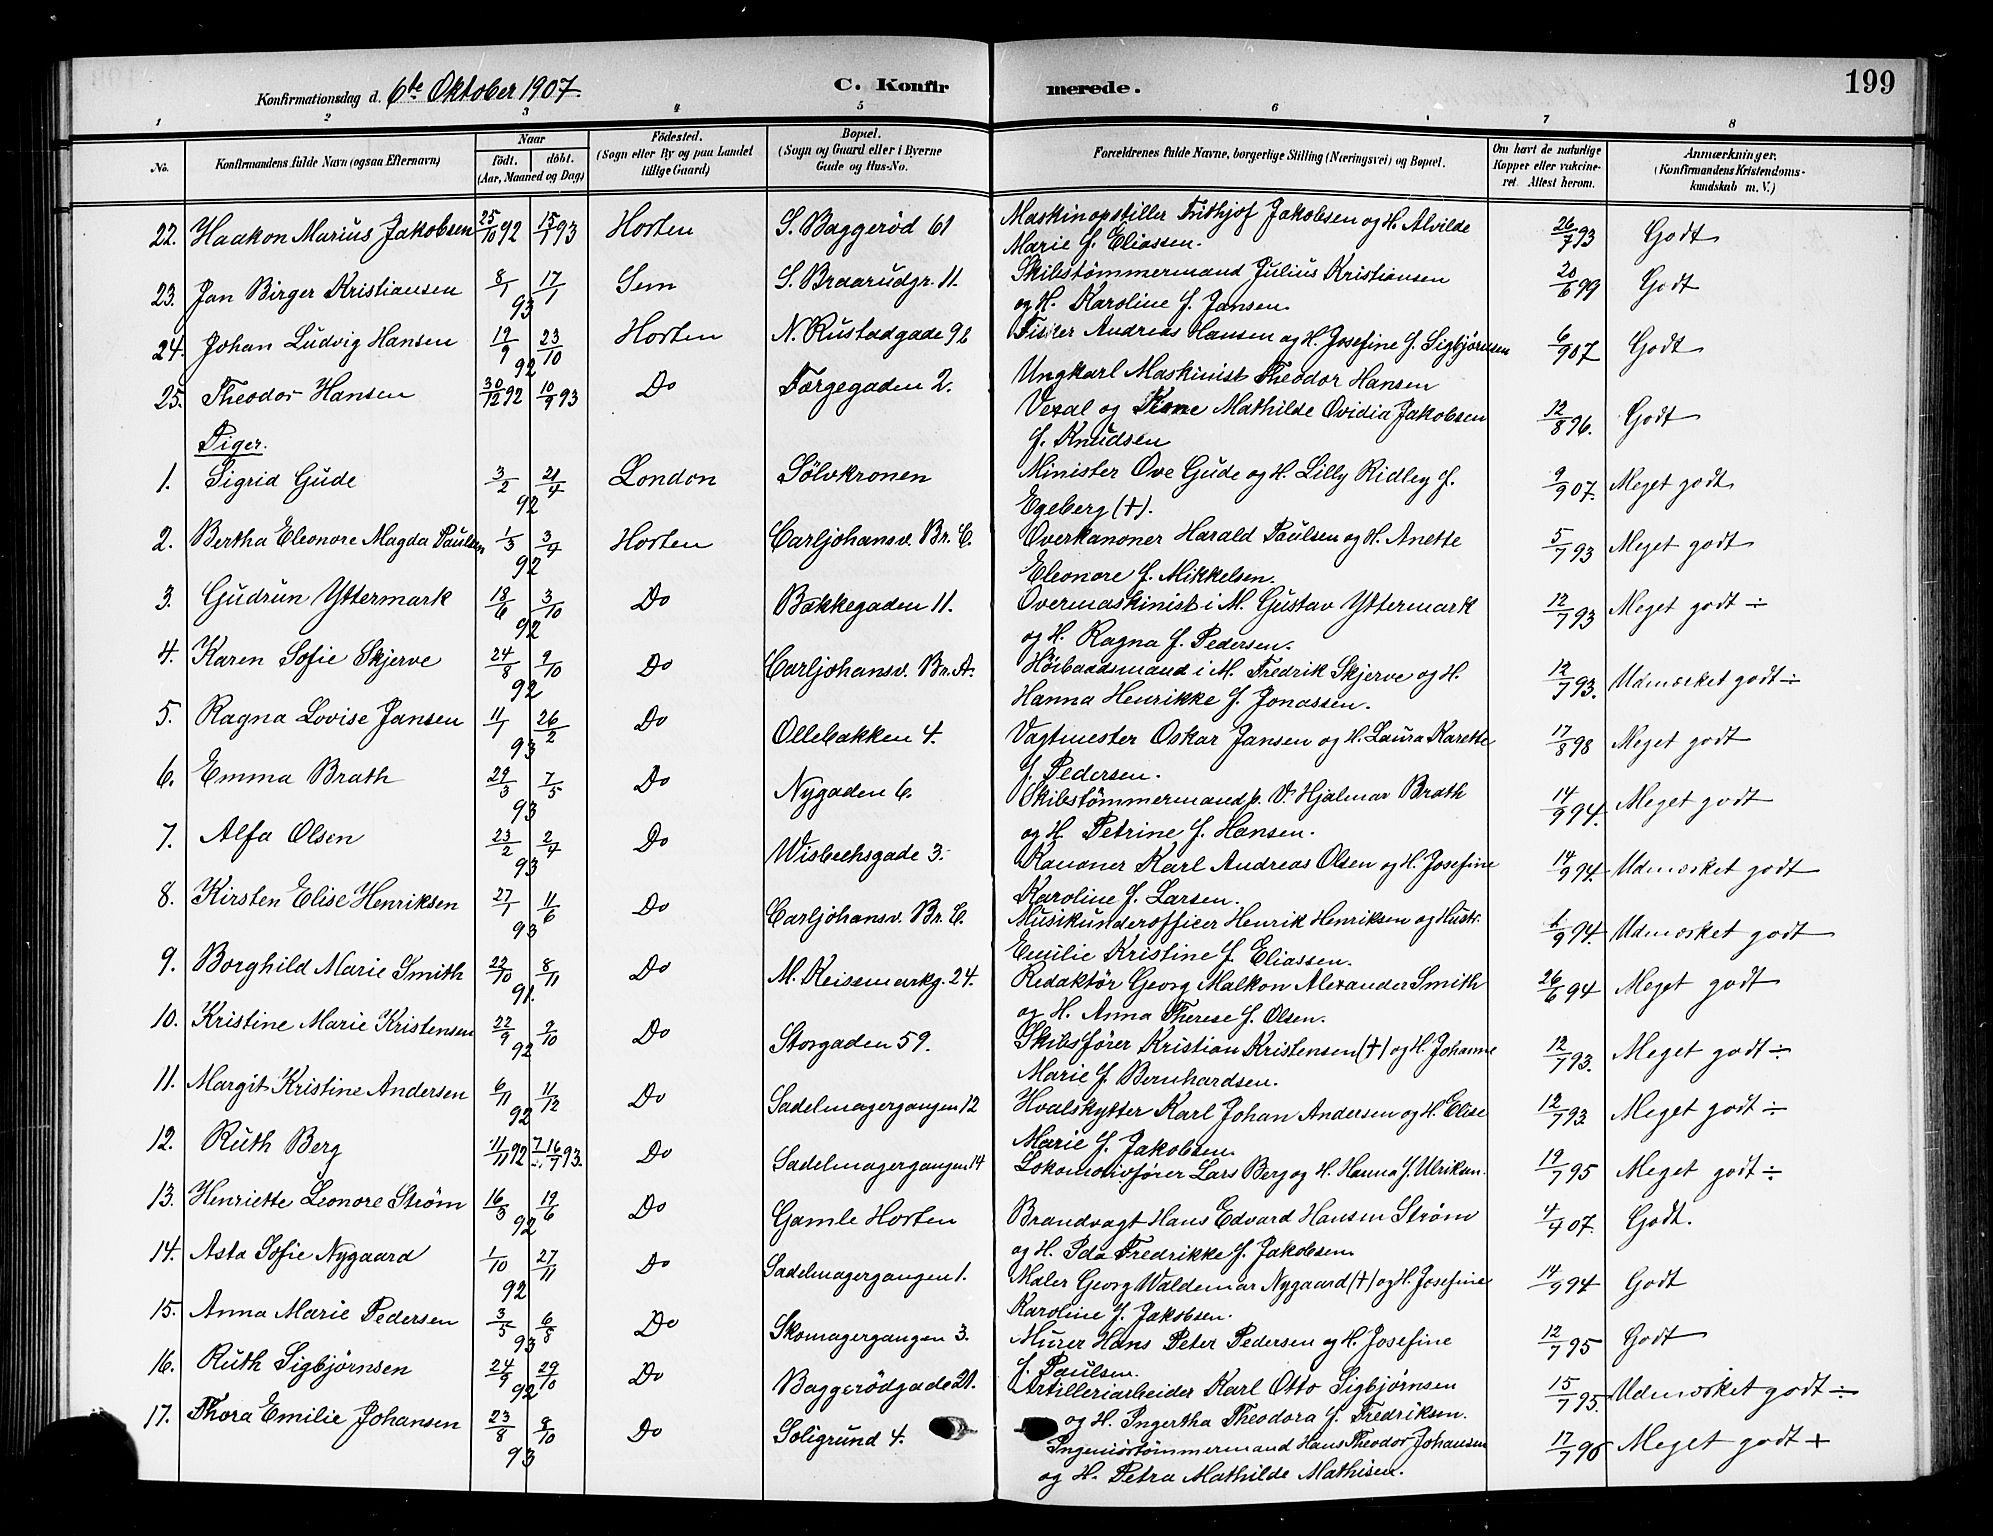 Konfirmationsdag d. 6te Oktober 1907. C. Konfirmerede. 199
1 2 3 4 5 6 7 8
No. Konfirmandens fulde Navn (ogsaa Efternavn) Naar födt. döbt. (Aar, Maaned og Dag) Födested. (Sogn eller By og paa Landet tillige Gaard) Bopæl. (Sogn og Gaard eller i Byerne Gade og Hus-No. Forældrenes fulde Navne, borgerlige Stilling (Næringsvei) og Bopæl. Om havt de naturlige Kopper eller vakcineret. Attest herom. Anmærkninger. (Konfirmandens Kristendomskundskab m. V.)
22. Haakon Marius Jakobsen 25/10 92 15/1 93 Horten S. Baggerød 61 Maskinopstiller Frithjof Jakobsen og H. Alvilde 26/7 93 Godt
Marie f. Eliassen.
23. Jan Birger Kristiansen 8/1 17/1 93 Sem S. Braarudgr. 11. Skibstömmermand Julius Kristiansen 20/6 99 Godt
og H. Karoline f. Jansen.
24. Johan Ludvig Hansen 12/9 23/10 92 Horten N. Rustadgade 9b Fisker Andreas Hansen og H. Josefine f. Sigbjørnsen 6/9 07 Godt
25. Theodor Hansen 30/12 92 10/9 93 Do Færgegaden 2. Ungkarl Maskinist Theodor Hansen
Vexal og Kone Mathilde Ovidia Jakobsen 12/8 96. Godt
f. Knudsen
Piger.
1. Sigrid Gude 3/2 21/4 92 London Sölvkronen Minister Ove Gude og H. Lilly Ridley f. 9/9 07. Meget godt
Egeberg (+).
2. Bertha Eleonore Magda Paulsen 1/3 3/4 92 Horten Carljohansv. Br. C. Overkanoner Harald Paulsen og H. Anette 5/7 93 Meget godt
Eleonore f. Mikkelsen.
3. Gudrun Yttermark 18/6 3/10 92 Do Bækkegaden 11. Overmaskinist i M. Gustav Yttermark 12/7 93 Meget godt ÷
og H. Ragna f. Pedersen.
4. Karen Sofie Skjerve 24/8 9/10 92 Do Carljohansv. Br. A. Höibaadsmand i M. Fredrik Skjerve og H. 12/7 93. Udmærket godt ÷
Hanna Henrikke f. Jonassen.
5. Ragna Lovise Jansen 11/1 26/2 93 Do Ollebakken 4. Vagtmester Oskar Jansen og H. Laura Karette 17/8 98 Meget godt
f. Pedersen.
6. Emma Brath 29/3 7/5 93 Do Nygaden 6. Skibstömmermand p. V. Hjalmar Brath 14/9 94. Meget godt
og H. Petrine f. Hansen.
7. Alfa Olsen 23/2 2/4 93 Do Wisbechsgade 3. Kanoner Karl Andreas Olsen og H. Josefine 14/9 94. Udmærket godt
Karoline f. Larsen.
8. Kirsten Elise Henriksen 27/1 11/6 93 Do Carljohansv. Br. C. Musikunderofficer Henrik Henriksen og Hustr. 1/9 94. Udmærket godt
Emilie Kristine f. Eliassen.
9. Borghild Marie Smith 22/10 8/11 91. Do M. Reisemarkg. 24. Redaktør Georg Malkon Alexander Smith 26/6 94 Meget godt
og H. Anna Therese f. Olsen.
10. Kristine Marie Kristensen 22/9 9/10 92 Do Storgaden 59. Skibsfører Kristian Kristensen (+) og H. Johanne 12/7 93. Meget godt ÷
Marie f. Bernhardsen.
11. Margit Kristine Andersen 6/11 11/12 92 Do Sadelmagergangen 12 Hvalskytter Karl Johan Andersen og H. Elise 12/7 93 Meget godt ÷
Marie f. Jakobsen.
12. Ruth Berg 11/11 92 16/7 93. Do Sadelmagergangen 14 Lokomotivfører Lars Berg og H. Hanna f. Ulriksen. 19/7 95 Meget godt ÷
13. Henriette Leonore Strøm 16/3 19/6 92 Do Gamle Horten Brandvagt Hans Edvard Hansen Strøm 4/4 07. Godt.
og H. Ida Fredrikke f. Jakobsen.
14. Asta Sofie Nygaard 1/10 27/11 92 Do Sadelmagergangen 1. Maler Georg Waldemar Nygaard (+) og H. Josefine 14/9 94 Godt
Karoline f. Jakobsen.
15. Anna Marie Pedersen 3/5 6/8 93 Do Skomagergangen 3. Murer Hans Peter Pedersen og H. Josefine 12/7 95 Godt
f. Paulsen.
16. Ruth Sigbjørnsen 24/9 29/10 92 Do Baggerödgade 21. Artilleriarbeider Karl Otto Sigbjørnsen 15/7 95. Udmærket godt ÷
og H. Ingertha Theodora f. Fredriksen.
17. Thora Emilie Johansen 23/8 8/10 93 Do Soligrund 4. Ingeniørtömmermand Hans Theodor Johansen 17/7 96 Meget godt +
og H. Petra Mathilde Mathisen.